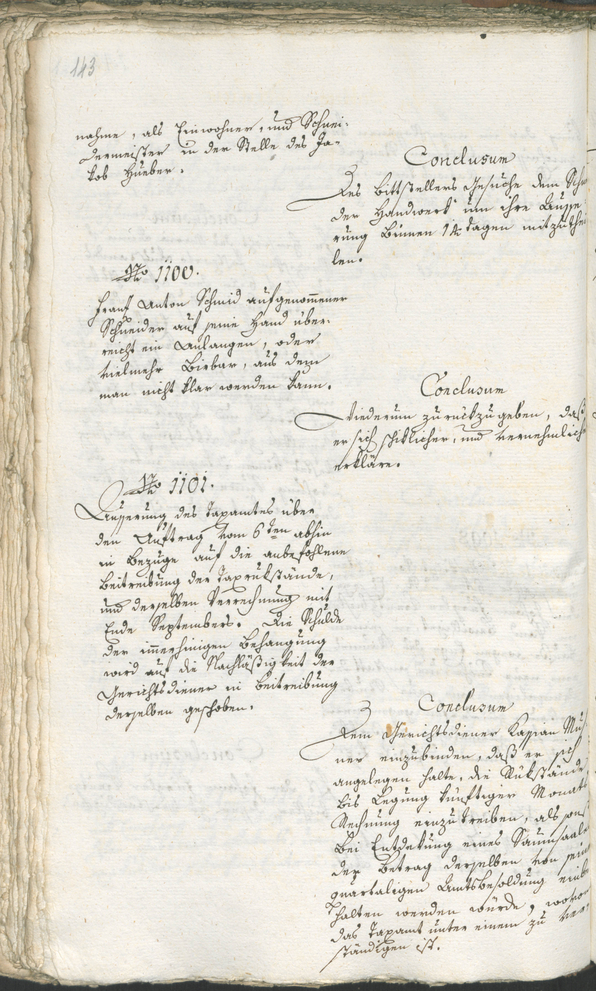 143
nahme, als Einwohner, und Schnei-
dermeister in der Stelle des Ja-
kob Hueber.
Conclusum
Des Bittstellers Gesuche dem
der Handwerk um ihre Äusse
rung binnen 14 tagen mitzuthei
len.
No 1100.
Franz Anton Schmid aufgenommener
Schneider auf seine Hand über-
reicht ein Anlangen, oder
vielmehr, aus dem
man nicht klar werden kann.
Conclusum
Wiederum zurückzugeben, daß
er sich schiklicher, und vernehmlich
erkläre.
No 1101.
Äusserung des Taxamtes über
den Auftrag vom 6ten abhin
in Bezuge auf die anbefohlene
Beitreibung der Taxrükstände,
und derselben Verrechnung mit
Ende Septembers. Die Schulde
der immerhinigen Behangung
wird auf die Nachläßigkeit der
Gerichtsdiener in Beitreibung
derselben geschoben.
Conclusum
Dem Gerichtsdiener Kassian
ner einzubinden, daß er sich
angelegen halte, die Rükstände
bis Legung künftiger Monats
Rechnung einzutreiben, als
bei Entdekung eines Saumsaales
der Betrag derselben von sein
quartaligen Amtsbesoldung einbe
halten werden würde, wovon
das Taxamt unter einem zu ver
ständigen ist.